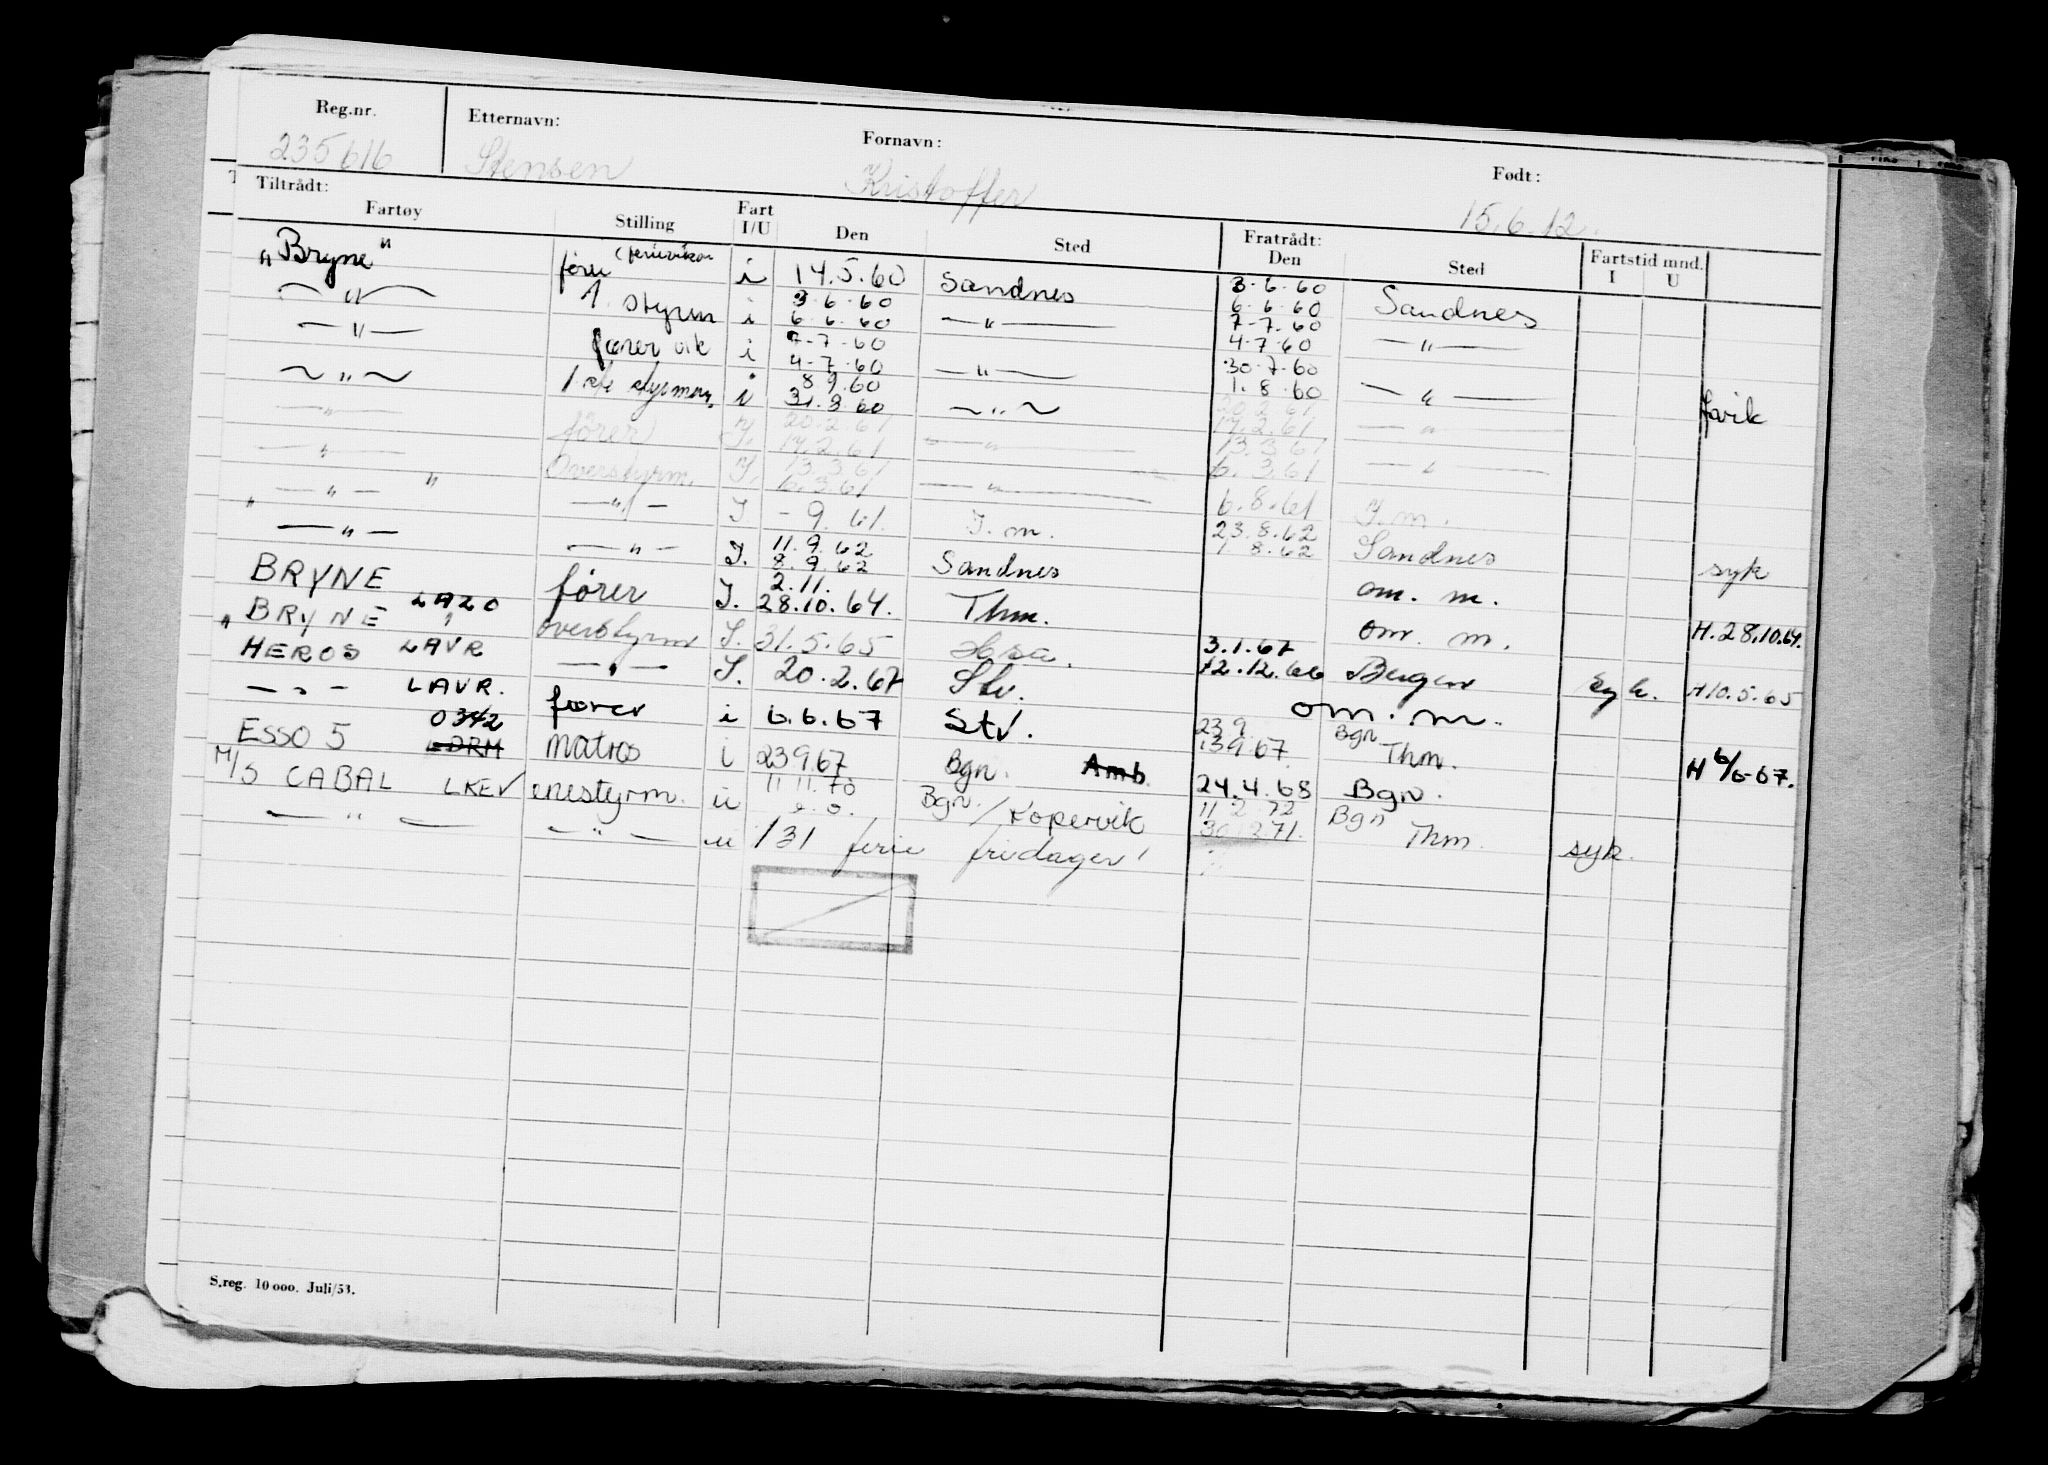 Reg.nr. Etternavn: Fornavn: Født:
235616 Stensen Kristoffer 15.6.12.
Tiltrådt: Fratrådt:
Fartøy Stilling Fart I/U Den Sted Den Sted Fartstid mnd. I U
"Bryne" fører (ferievikar i 14.5.60 Sandnes 3.6.60 Sandnes
— " — 1. styrm i 3.6.60 6.6.60 — " — 6.6.60 7-7.60 — " —
— " — fører vik i 7-7.60 4-7.60 — " — 4-7.60 30.7.60 — " —
~ " ~ 1ste styrman i 8 9.60 31.8 60 ~ " ~ 1.8.60 — " — favik
— " — fører I. 20.2.61 17.2.61 — " — 20.2.61 17.2.61 — " —
— " — Overstyrm. I. 13.3.61 6.3.61 — " — 13.3.61 6.3.61 — " —
— " — " — " — I - 9. 61. I. m. 6.8.61 I. m.
" — " — — " — I. 11.9.62 8.9.62 Sandnes 23.8.62 1.8.62 Sandnes syk
BRYNE fører I. 2.11. 28.10.64. Thm. om. m.
"BRYNE" LAZO overstyrm I. 31.5.65 Hsa. om. m. H.28.10.64.
HEROS LAVR — " — I. 20.2.67 Stv. 3.1.67 12.12.66 Bergen syk. H10.5.65
— " — LAVR. fører i 6.6.67 Stv. om. m.
ESSO 5 0342 LDRM matros i 23967 Bgn. Amb. 23 9 13967. Bgn Thm. H 6/6-67.
M/S CABAL LKEV enestyrm. u 11 11.70 Bgn. /Kopervik 24.4.68 Bgn.
— " — — " — u 131 ferie fridager! 11 2 72 Bgn Thm. syk.
S.reg. 10 000. Juli/53.